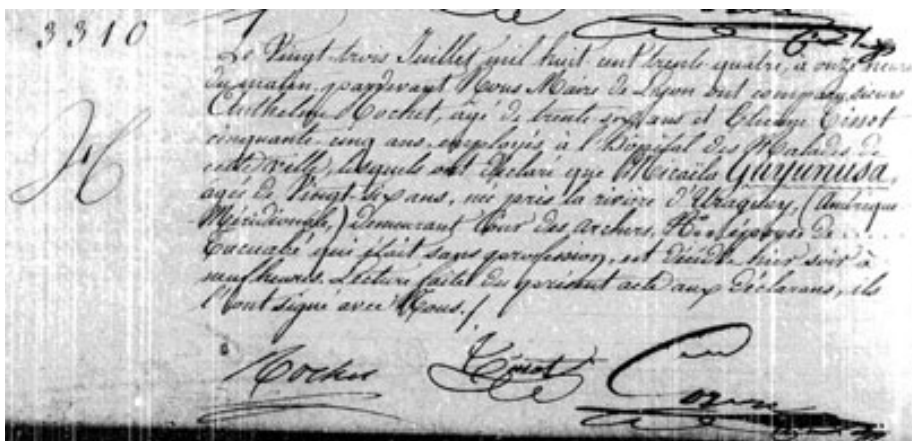 3310
Le Vingt-trois Juillet mil huit cent trente quatre, à onze heures
du matin, pardevant Nous Maire de Lyon ont comparu sieurs
Anthelme Rochet, âgé de trente six ans et Etienne Tissot
cinquante-cinq ans, employés à l'hôpital des Malades de
cette ville, lesquels ont déclaré que Micaëla Guyunusa,
agée de Vingt-six ans, née près la rivière d'Uraguay, (Amérique
Méridionale,) Demeurant Cour des Archers, épouse de
Tacuabé qui était sans profession, est décédée hier soir à
neuf heures. Lecture faite du présent acte aux déclarans, ils
l'ont signé avec Nous./
Rochet Tissot